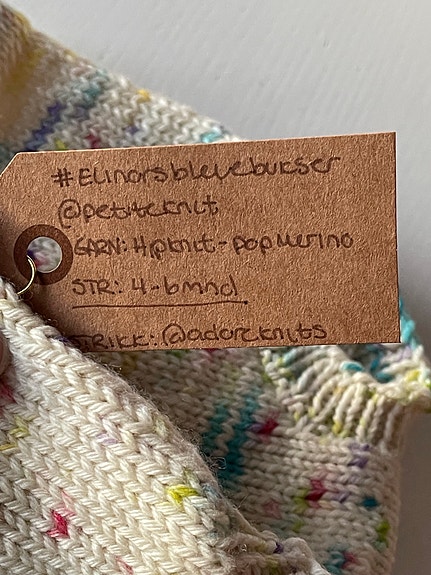 #Elinorsbleiebukser
@petiteknit
GARN: Hipknit-pop merino
STR: 4-6mnd
STRIKK: @adoreknits